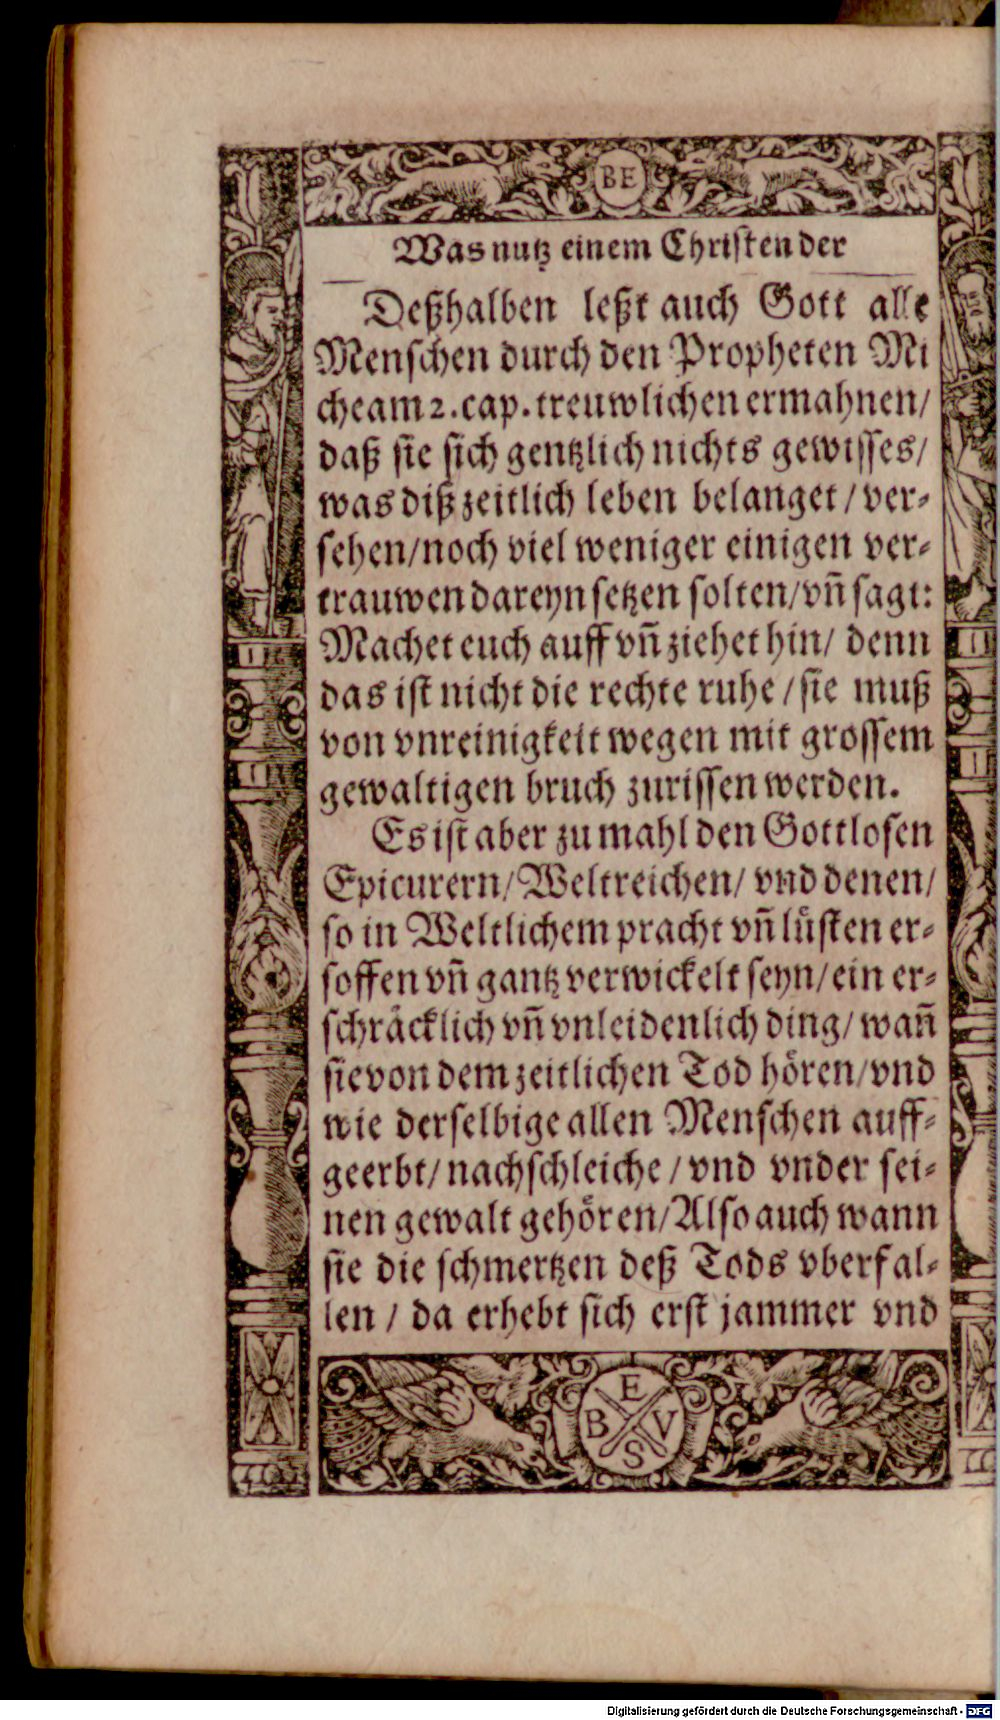 BE
Was nutz einem Christen der
Deßhalben leßt auch Gott alle
Menschen durch den Propheten Mi
cheam 2. cap. treuwlichen ermahnen/
daß sie sich gentzlich nichts gewisses/
was diß zeitlich leben belanget / ver-
sehen/noch viel weniger einigen ver-
trauwen dareyn setzen solten/vñ sagt:
Machet euch auff vñ ziehet hin/ denn
das ist nicht die rechte ruhe / sie muß
von vnreinigkeit wegen mit grossem
gewaltigen bruch zurissen werden.
Es ist aber zu mahl den Gottlosen
Epicurern/ Weltreichen/ vnd denen/
so in Weltlichem pracht vñ lüsten er-
soffen vñ gantz verwickelt seyn/ein er-
schräcklich vñ vnleidenlich ding/ wañ
sie von dem zeitlichen Tod hören/vnd
wie derselbige allen Menschen auff-
geerbt/ nachschleiche / vnd vnder sei-
nen gewalt gehören/Also auch wann
sie die schmertzen deß Tods vberfal-
len / da erhebt sich erst jammer vnd
E
B V
S
Digitalisierung gefördert durch die Deutsche Forschungsgemeinschaft - DFG